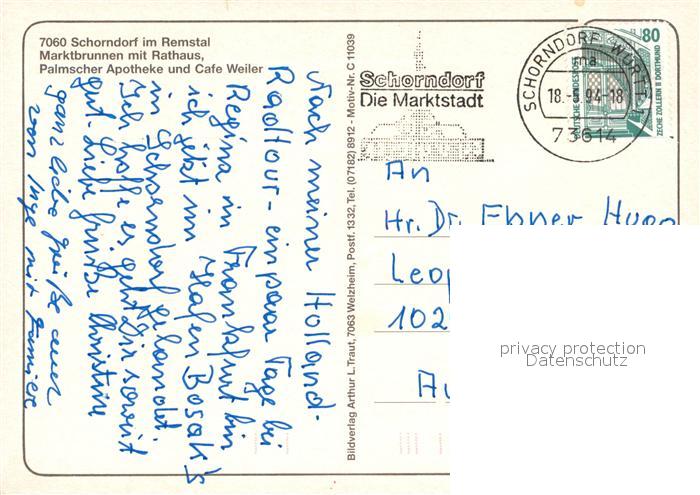 7060 Schorndorf im Remstal
Marktbrunnen mit Rathaus,
Palmscher Apotheke und Cafe Weiler
Nach meiner Holland-
Radtour - ein paar Tage bei
Regina in Frankfurt bin
ich jetzt im Hafen Bosak's
in Schorndorf gelandet.
Ich hoffe es geht Dir soweit
gut. Liebe Grüße Christine
ganz liebe Grüße auch
von Inge mit Familie
Bildverlag Arthur L. Traut, 7063 Welzheim, Postf. 1332, Tel. (07182) 8912 - Motiv-Nr. C 11039
Schorndorf
Die Marktstadt
SCHORNDORF, WÜRTT
ma
18.-8.94-18
73614
80
DEUTSCHE BUNDESPOST
ZECHE ZOLLERN II DORTMUND
An
Hr. Dr. Ebner Hugo
Leop
102
Au
privacy protection
Datenschutz